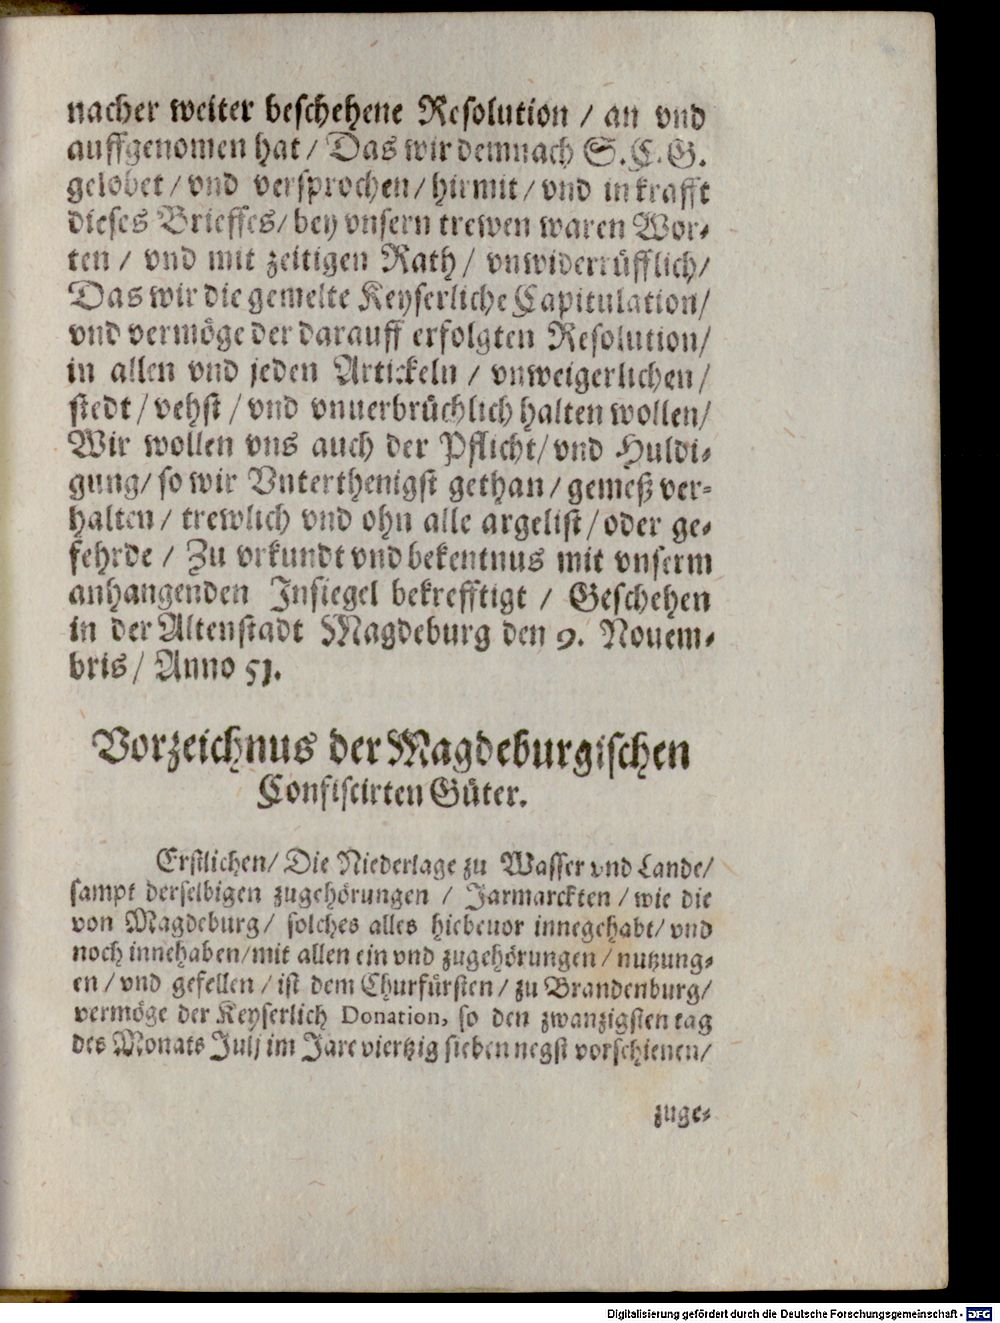 nacher weiter beschehene Resolution / an vnd
auffgenomen hat / Das wir demnach S. C. G.
gelobet / vnd versprochen / hirmit / vnd in krafft
dieses Brieffes / bey vnsern trewen waren Wor-
ten / vnd mit zeitigen Rath / vnwiderrüfflich /
Das wir die gemelte Keyserliche Capitulation /
vnd vermöge der darauff erfolgten Resolution /
in allen vnd jeden Artickeln / vnweigerlichen /
stedt / vehst / vnd vnuerbrüchlich halten wollen /
Wir wollen vns auch der Pflicht / vnd Huldi-
gung / so wir Vnterthenigst gethan / gemeß ver-
halten / trewlich vnd ohn alle argelist / oder ge-
fehrde / Zu vrkundt vnd bekentnus mit vnserm
anhangenden Insiegel bekrefftigt / Geschehen
in der Altenstadt Magdeburg den 9. Nouem-
bris / Anno 51.
Vorzeichnus der Magdeburgischen
Confiscirten Güter.
Erstlichen / Die Niederlage zu Wasser vnd Lande /
sampt derselbigen zugehörungen / Jarmarckten / wie die
von Magdeburg / solches alles hiebeuor innegehabt / vnd
noch innehaben / mit allen ein vnd zugehörungen / nutzung-
en / vnd gefellen / ist dem Churfürsten / zu Brandenburg /
vermöge der Keyserlich Donation, so den zwanzigsten tag
des Monats Julj im Jare viertzig sieben negst vorschienen /
zuge-
Digitalisierung gefördert durch die Deutsche Forschungsgemeinschaft - DFG